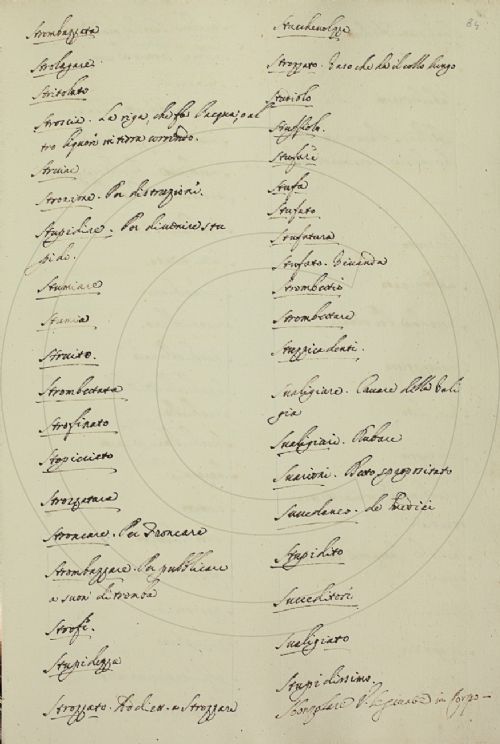 84
Strombazzata
Strolagare.
Stritolato
Stroscia. La riga, che fa l'acqua, o al
tro liquore in terra correndo.
Struzione. Per distruzione.
Stupidire. Per divenire stu
pido.
Stumiare
Stumia
Struito.
Strombettata
Strofinato
Strozzatura
Stroncare. Per Troncare
Strombazzare. Per pubblicare
a suon di tromba
Strofe.
Stupidezza
Strozzato. Addiett. a Strozzare
Stucchevolezza
Strozzato. Vaso che ha il collo lungo
Stufare
Stufa
Stufato
Stufatura
Stufato. Vivanda
Strombettio
Strombettare
Stuzzicadenti.
Svaligiare. Cavare della vali
gia
Svaligiare. Rubare
Svarione. Detto spropositato
Succedaneo. de Medici
Stupidito
Succeditori
Svaligiato
Stupidissimo.
in Corpo